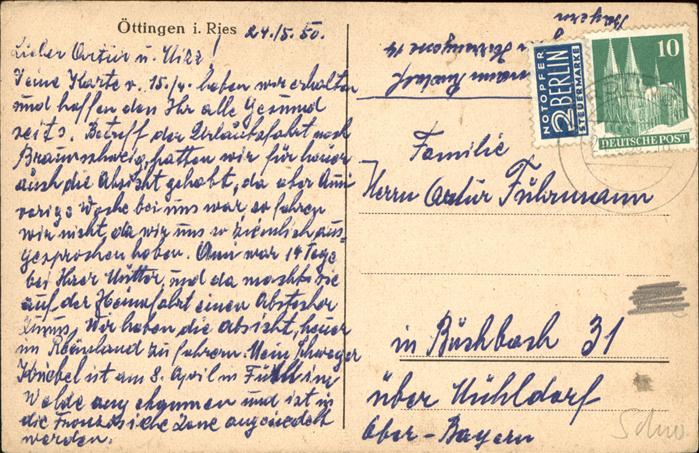 Öttingen i. Ries 24./5. 50.
Lieber Artur u. Mizz!
Deine Karte v. 15./4. haben wir erhalten
und hoffen das Ihr alle Gesund
seits. Betreff der Urlaubsfahrt nach
Braunschweig, hatten wir für heuer
auch die Absicht gehabt, da aber Anni
vorige Woche bei uns war, so fahren
wir nicht, da wir uns so ziemlich aus-
gesprochen haben. Anni war 14 Tage
bei Ihrer Mutter, und da machte sie
auf der Heimfahrt einen Abstecher
zu uns. Wir haben die Absicht, heuer
im Rheinland zu fahren. Mein Schwager
ist am 8. April in
und ist in
die Französische Zone angesiedelt
worden.
Bayern
NOTOPFER
2 BERLIN
STEUERMARKE
10
DEUTSCHE POST
Familie
Herrn Artur Führmann
in Buchbach 31
über Mühldorf
Ober-Bayern